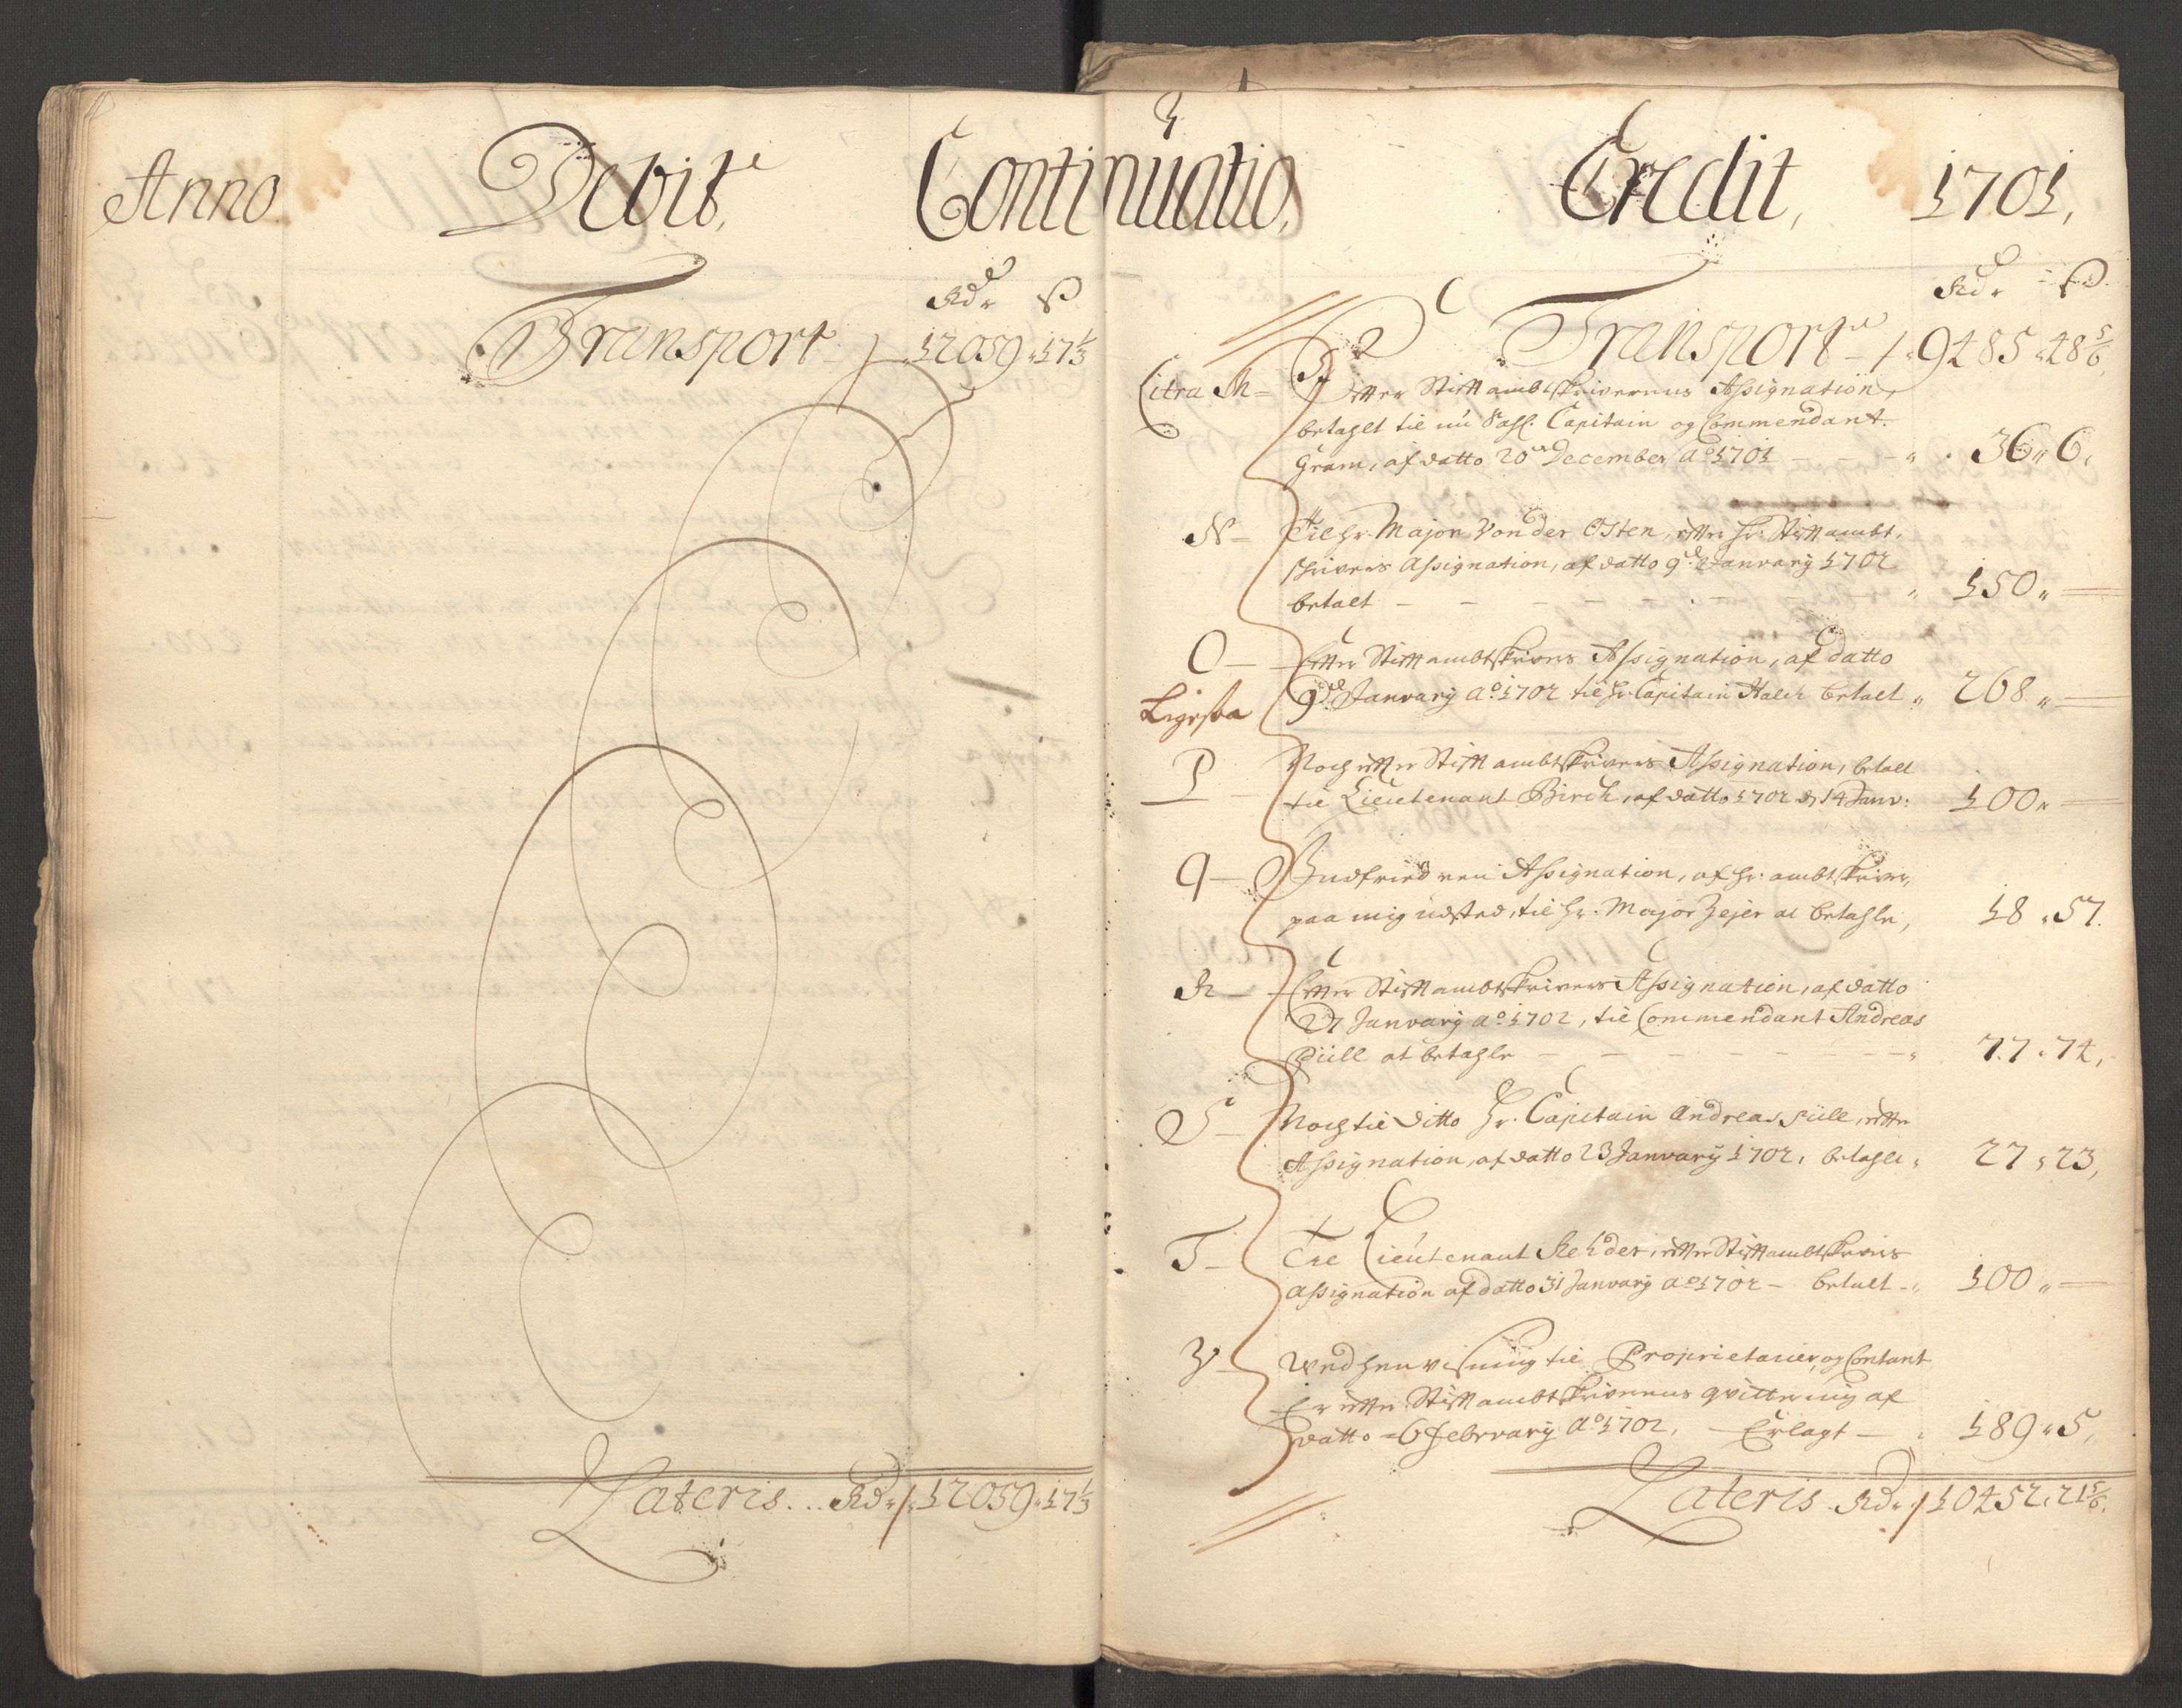 Anno Debit, Continuatio, Credit, 1701,
Rdr ß
Transport 12059 " 17 1/3
Lateris... Rdr 12059 " 17 1/3
Rdr ß
Transport 9485 " 48 5/6
Litra M= Efter Stiftambtskriverens Assignation,
betaglt til nu Sahl. Capitain og Commendant.
Gram, af datto 20 December Ao 1701 - - - 36 " 6,
N= Til Hr. Major Von der Osten, efter Hr. Stiftambt,
skrivers Assignation, af datto 9de January 1702
betalt - - - - - - 150 "
O- Efter Stiftambtskrivers Assignation, af datto
9de January Ao 1702 til Hr. Capitain Halck betalt " 268 "
Ligesaa
P Noch efter Stiftambtskrivers Assignation, betalt
til Lieutenant Birch, af datto 1702 d. 14 Janv: 100 "
Q- Indfried een Assignation, af Hr. ambtskriver,
paa mig udsted, til Hr. Major Zejer at betahle, 18 " 57.
R- Efter Stiftambtskrivers Assignation, af datto
21 January ao 1702, til Commendant Andreas
Püll at betahle - - - - - - 77 " 74,
S- Noch til ditto Hr. Capitain Andreas Püll, efter
Assignation, af datto 23 January 1702, betahlt " 27 " 23,
T- Til Lieutenant Rehder, efter Stiftambtskrivers
Assignation af datto 31 January Ao 1702 - betalt - " 100 "
V- Wed henvisning til Proprietarier, og Contant
Er efter Stiftambtskriverens qvittering af
datto = 6 February Ao 1702, - Erlagt - " 189 " 5,
Lateris Rdr 10452 " 21 5/6.